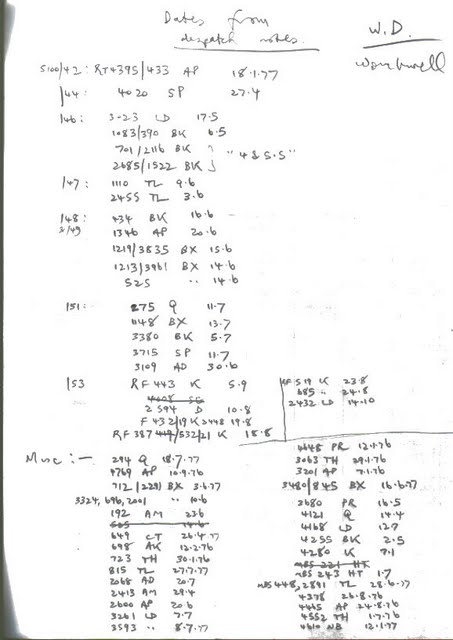 Dates from
despatch notes.
W.D.
Wombwell
S100/42: RT4395/433 AP 18.1.77
/44: 4020 SP 27.4
/46: 3-23 LD 17.5
1083/390 BK 6.5
701/2116 BK } "4 & S.S"
2685/1522 BK
/47: 1110 TL 9.6
2455 TL 3.6
/48: 434 BK 16.6
S/49 1346 AP 20.6
1219/3835 BX 15.6
1213/3961 BX 14.6
525 " 14.6
/51: 275 Q 11.7
1148 BX 13.7
3380 BK 5.7
3715 SP 11.7
3109 AD 30.6
/53 RF 443 K 5.9
2594 D 10.8
F 432/19 K 2448 19.8
RF 387 419/532/21 K 18.8
RF 519 K 23.8
685 " 24.8
2432 LD 14.10
Misc :-
294 Q 18.7.77
4769 AP 10.9.76
712/2291 BX 3.6.77
3324, 696, 2001 " 10.6
192 AM 23.6
505 14.6
649 CT 26.4.77
698 AK 12.2.76
723 TH 30.1.76
815 TL 27.7.77
2068 AD 20.7
2413 AM 29.4
2600 AP 20.6
3261 LD 7.7
3593 " 8.7.77
4648 PR 12.1.76
3063 TH 29.1.76
3201 AP 7.1.76
3480/845 BX 16.6.77
3680 PR 16.5
4121 Q 14.4
4168 LD 12.7
4255 BK 2.5
4280 K 7.1
MBS 221 HT
MBS 243 HT 1.7
MBS 448, 2891 TL 28.6.77
4378 26.8.76
4465 AP 24.8.76
4552 TH 1.7.76
4610 NB 12.1.77